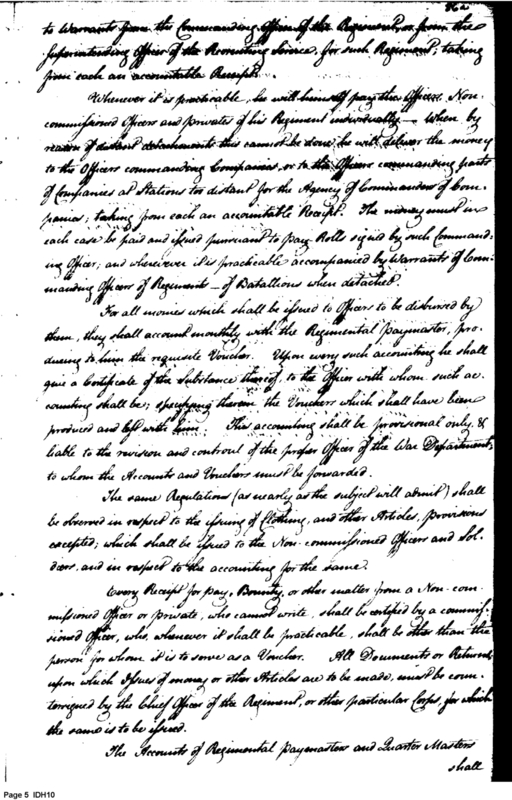 362
to Warrants from the Commanding Officer of the Regiment, or from the
Superintending Officer of the Recruiting Service, for such Regiment; taking
from each an accountable Receipt.
Whenever it is practicable, he will himself pay the Officers, Non-
commissioned Officers and privates of his Regiment individually — When by
reason of distant detachments this cannot be done, he will deliver the money
to the Officers commanding Companies, or to the Officers commanding parts
of Companies at Stations too distant for the Agency of Commanders of Com-
panies; taking from each an accountable Receipt. The money must in
each case be paid and issued pursuant to pay Rolls signed by such Command-
ing Officer; and whenever it is practicable accompanied by Warrants of Com-
manding Officers of Regiments — of Batallions when detached.
For all monies which shall be issued to Officers to be disbursed by
them, they shall account monthly with the Regimental paymaster, pro-
ducing to him the requisite Voucher. Upon every such accounting he shall
give a Certificate of the Substance thereof, to the Officer with whom such ac-
counting shall be; specifying therein the Vouchers which shall have been
produced and left with him. This accounting shall be provisional only, &
liable to the revision and controul of the proper Officer of the War Department,
to whom the Accounts and Vouchers must be forwarded.
The same Regulations (as nearly as the subject will admit) shall
be observed in respect to the issuing of Clothing, and other Articles, provisions
excepted; which shall be issued to the Non-commissioned Officers and Sol-
diers, and in respect to the accounting for the same.
Every Receipt for pay, Bounty, or other matter from a Non-com-
missioned Officer or private, who cannot write, shall be certified by a commis-
sioned Officer, who, whenever it shall be practicable, shall be other than the
person for whom it is to serve as a Voucher. All Documents or Returns
upon which Issues of money or other Articles are to be made, must be coun-
tersigned by the Chief Officer of the Regiment, or other particular Corps, for which
the same is to be issued.
The Accounts of Regimental paymasters and Quarter Masters
shall
Page 5 IDH10